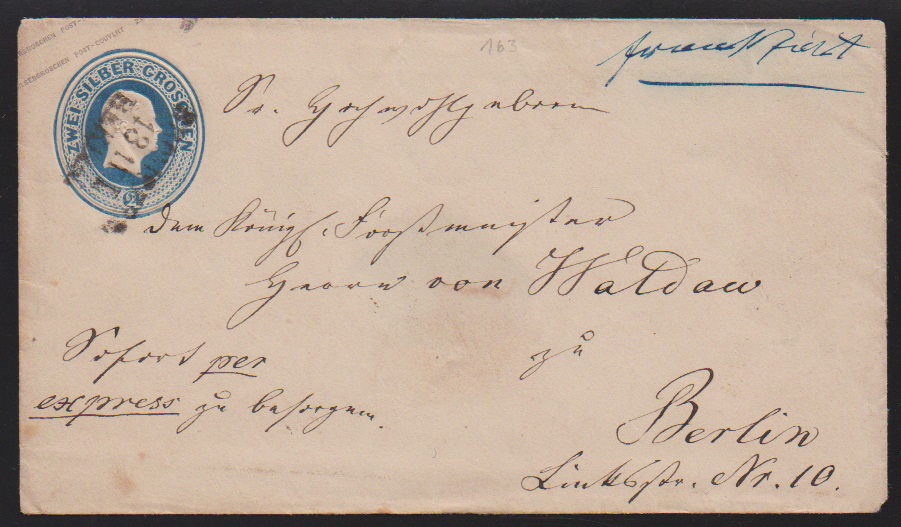 SILBERGROSCHEN POST-COUVERT
ZWEI SILBER-GROSCHEN
2
18 11
163
Sr. Hochwohlgeboren
dem Königl. Forstmeister
Herrn von Waldaw
zu
Berlin
Linksstr. Nr. 10.
Sofort per
express zu besorgen.